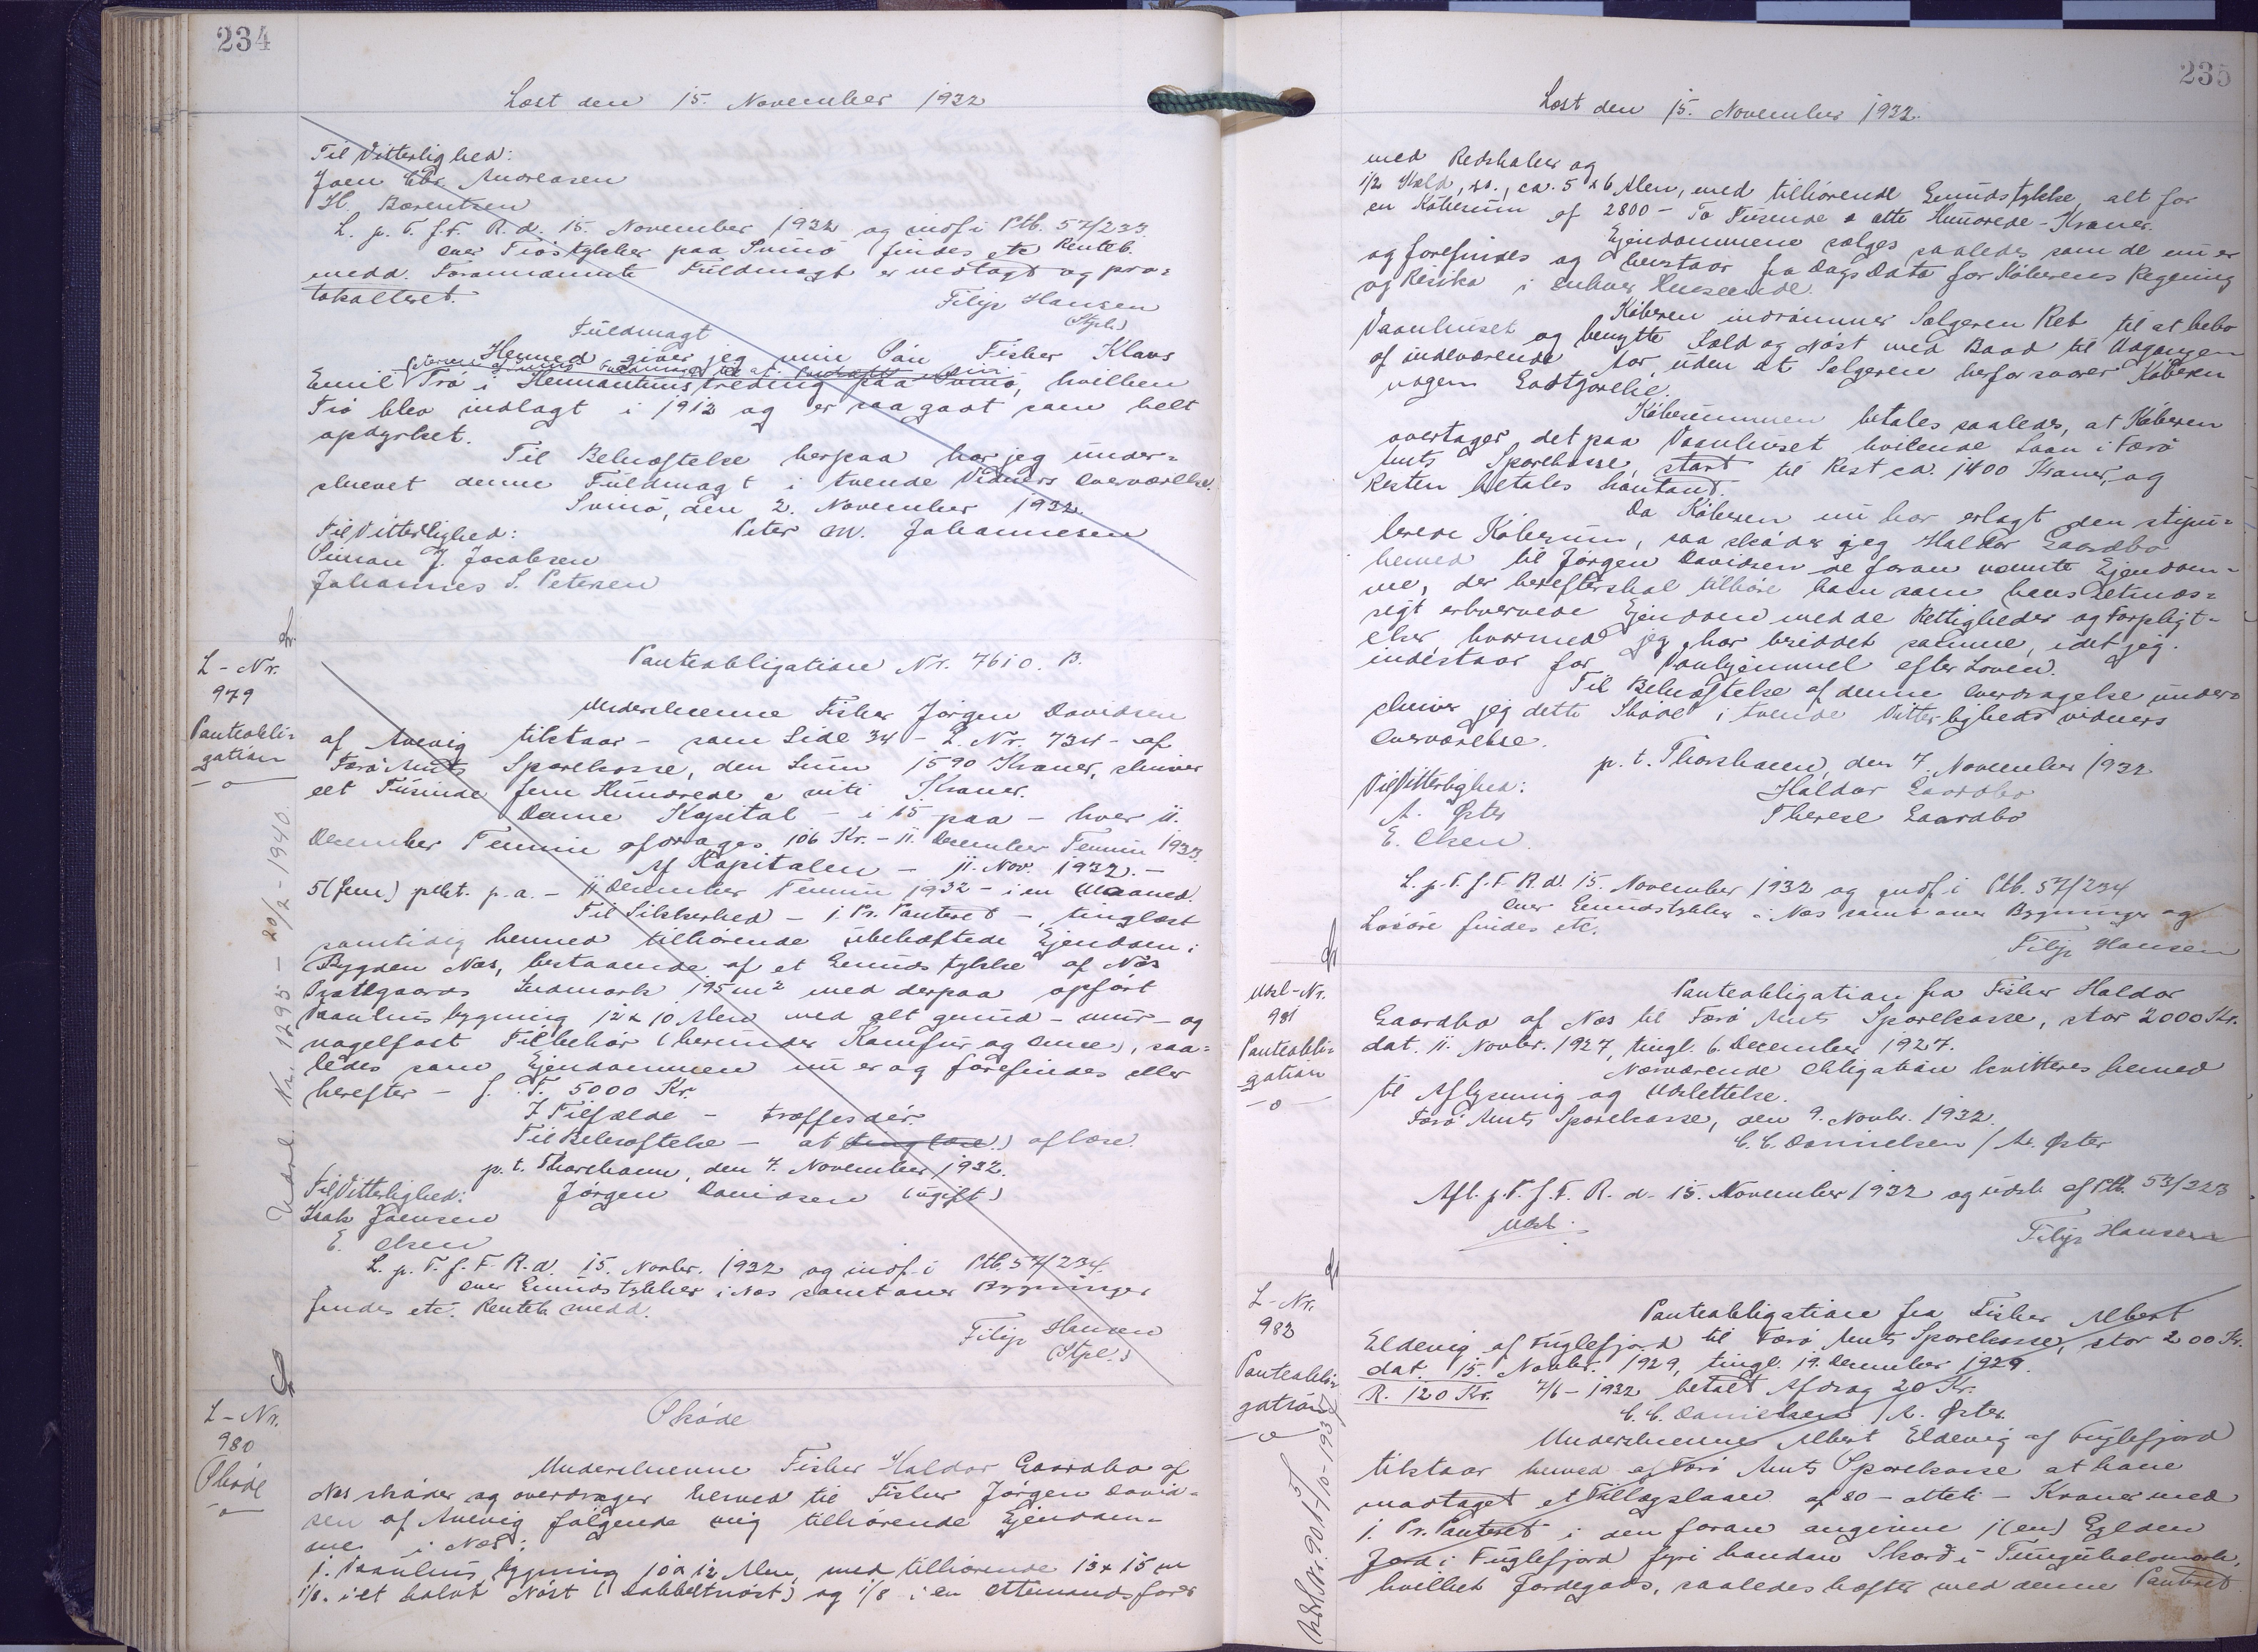 234
Læst den 15. November 1932
Til Vitterlighed:
Joen Chr. Andreasen
H. Bærentsen
L. p. T. f. F. R. d. 15. November 1932 og indf. i Ptb. 57/233.
over Trøstykker paa Svinø findes etc Renteb.
medd. Forannævnte Fuldmagt er modtagt og pro-
tokolleret.
Filip Hansen
(Stpl.)
Fuldmagt
Hermed giver jeg min Søn Fisker Klaus
Emil
Trø i Hermanstuns træding paa Svinø, hvilken
Trø blev indlagt i 1912 og er saa godt som helt
opdyrket.
Til Bekræftelse herpaa har jeg under-
skrevet denne Fuldmagt i tvende Vidners Overværelse.
Svinø, den 2. November 1932.
Til Vitterlighed:
Peter M. Johannesen
Simon J. Jacobsen
Johannes S. Petersen
L-Nr.
979
Panteobli-
gation
Pantobligation Nr. 7610. B.
Underskrevne Fisker Jørgen Davidsen
af Avevig tilstaar - som Side 34 - L. Nr. 734 - af
Færø Amts Sparekasse, den Sum 1590 Kroner, skriver
eet Tusinde fem Hundrede & niti Kroner.
Denne Kapital - i 15 paa - hver 11.
December Termin afdrages 106 Kr. - 11. December Termin 1933.
Af Kapitalen - 11. Nov. 1932. -
5 (fem) pCt. p. a. - 11 December Termin 1932 - i en Maaned.
Til Sikkerhed - 1. Pr. Panteret - tinglæst
samtidig hermed tilhørende ubehæftede Ejendom i
Bygden Næs, bestaaende af et Grundstykke af Næs
Præstgaards Indmark 195 m² med derpaa opført
Vaanhusbygning 12 x 10 Alen med alt grund- mur- og
nagelfast Tilbehør (herunder Komfur og Ovne), saa-
ledes som Ejendommen nu er og forefindes eller
herefter - f. F. 5000 Kr.
I Tilfælde - træffes dér.
Til Bekræftelse - at tinglæse) aflæse.
p. t. Thorshavn, den 7. November 1932.
Til Vitterlighed:
Jørgen Davidsen (ugift)
Isak Joensen
E. Olsen
L. p. T. f. F. R. d. 15. Novbr. 1932 og indf. i Ptb. 57/234.
over Grundstykker i Næs samt over Bygninger
findes etc. Renteb. medd.
Filip Hansen
(Stpl.)
Udsl. Nr. 1295 - 20/2 - 1940.
L-Nr.
980
Skøde
Skøde
Underskrevne Fisker Haldor Gaardbo af
Næs skøder og overdrager hermed til Fisker Jørgen David-
sen af Avevig følgende mig tilhørende Ejendom-
me i Næs:
1. Vaanhusbygning 10 x 12 Alen, med tilhørende 13 x 15 m
1/8. i et halvt Nøst (Dobbeltnøst) og 1/8 i en Ottemandsfarer
235
Læst den 15. November 1932.
med Redskaber og
1/2 Kæld, st., ca. 5 x 6 Alen, med tilhørende Grundstykke, alt for
en Købesum af 2800 - To Tusende & otte Hundrede - Kroner.
Ejendommene sælges saaledes som de nu er
og forefindes og henstaar fra Dags Dato for Køberens Regning
og Risiko i enhver Henseende.
Køberen indrømmer Sælgeren Ret til at bebo
Vaanhuset og benytte Kæld og Nøst med Baad til Udgangen
af indeværende Aar, uden at Sælgeren herfor svarer Køberen
nogen Godtgørelse.
Købesummen betales saaledes, at Køberen
overtager det paa Vaanhuset hvilende Laan i Færø
Amts Sparekasse, stort til Rest ca. 1400 Kroner, og
Resten betales kontant.
Da Køberen nu har erlagt den stipu-
lerede Købesum, saa skøder jeg Haldor Gaardbo
hermed til Jørgen Davidsen de foran nævnte Ejendom-
me, der herefter skal tilhøre ham som hans retmæs-
sigt erhvervede Ejendom med de Rettigheder og Forpligt-
elser, hvormed jeg har besiddet samme, idet jeg
indestaar for Vanhjemmel efter Loven.
Til Bekræftelse af denne Overdragelse under-
skriver jeg dette Skøde i tvende Vitterlighedsvidners
Overværelse.
p. t. Thorshavn, den 7. November 1932
Til Vitterlighed:
Haldor Gaardbo
A. Øster
Therese Gaardbo
E. Olsen.
L. p. T. f. F. R. d. 15. November 1932 og indf. i Ptb. 57/234
over Grundstykker i Næs samt over Bygninger og
Løsøre findes etc.
Filip Hansen
Udsl-Nr.
981
Panteobli-
gation
Panteobligation fra Fisker Haldor
Gaardbo af Næs til Færø Amts Sparekasse, stor 2000 Kr.
dat. 11. Novbr. 1927, tingl. 6. December 1927.
Nærværende Obligation kvitteres hermed
til Aflysning og Udslettelse.
Færø Amts Sparekasse, den 9. Novbr. 1932.
C. C. Danielsen / A. Øster
Afl. p. T. f. F. R. d. 15. November 1932 og udsl. af Ptb. 53/223
Udsl.
Filip Hansen
L-Nr.
982
Panteobli-
gation
Panteobligation fra Fisker Albert
Eldevig af Fuglefjord til Færø Amts Sparekasse, stor 200 Kr.
dat. 15. Novbr. 1929, tingl. 19. December 1929.
R. 120 Kr. 7/6 - 1932 betalt Afdrag 20 Kr.
C. C. Danielsen / A. Øster.
Underskrevne Albert Eldevig af Fuglefjord
tilstaar hermed af Færø Amts Sparekasse at have
modtaget et Tillægslaan af 80 - otteti - Kroner med
1. Pr. Panteret i den foran angivne 1 (en) Gylden
Jord i Fuglefjord fyri handan Skard i Tunguhalsmork,
hvilket Jordegods, saaledes hæfter med denne Panteret